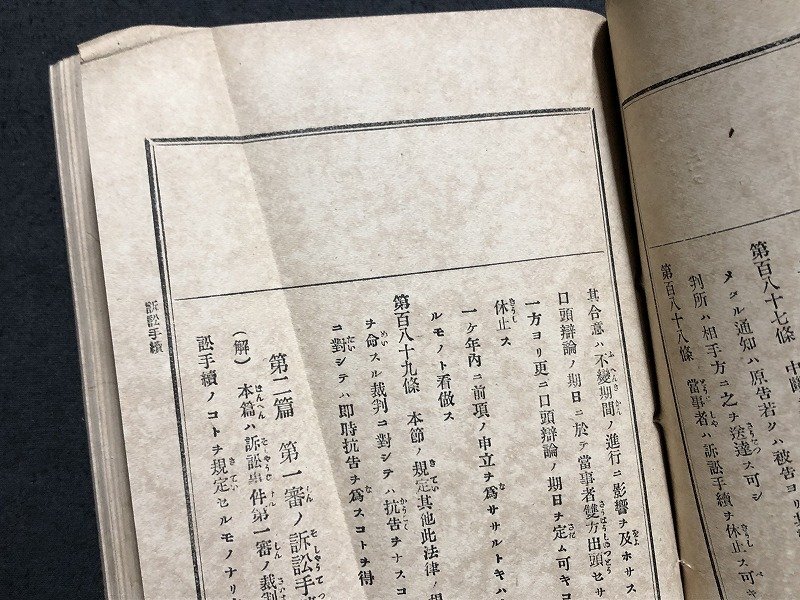 第百八十七條 中
タル通知ハ原告若クハ被告ヨリ
判所ハ相手方ニ之ヲ送達ス可シ
第百八十八條 當事者ハ訴訟手續ヲ休止ス
其合意ハ不變期間ノ進行ニ影響ヲ及ホサス
口頭辯論ノ期日ニ於テ當事者雙方出頭セサ
一方ヨリ更ニ口頭辯論ノ期日ヲ定ム可キコ
休止ス
一ケ年内ニ前項ノ申立ヲ爲ササルトキハ
ルモノト看做ス
第百八十九條 本節ノ規定其他此法律ノ規
ヲ命スル裁判ニ對シテハ抗告ヲナスコ
ニ對シテハ即時抗告ヲ爲スコトヲ得
第二篇 第一審ノ訴訟手
(解) 本篇ハ訴訟事件第一審ノ裁判
訟手續ノコトヲ規定セルモノナリ
訴訟手續